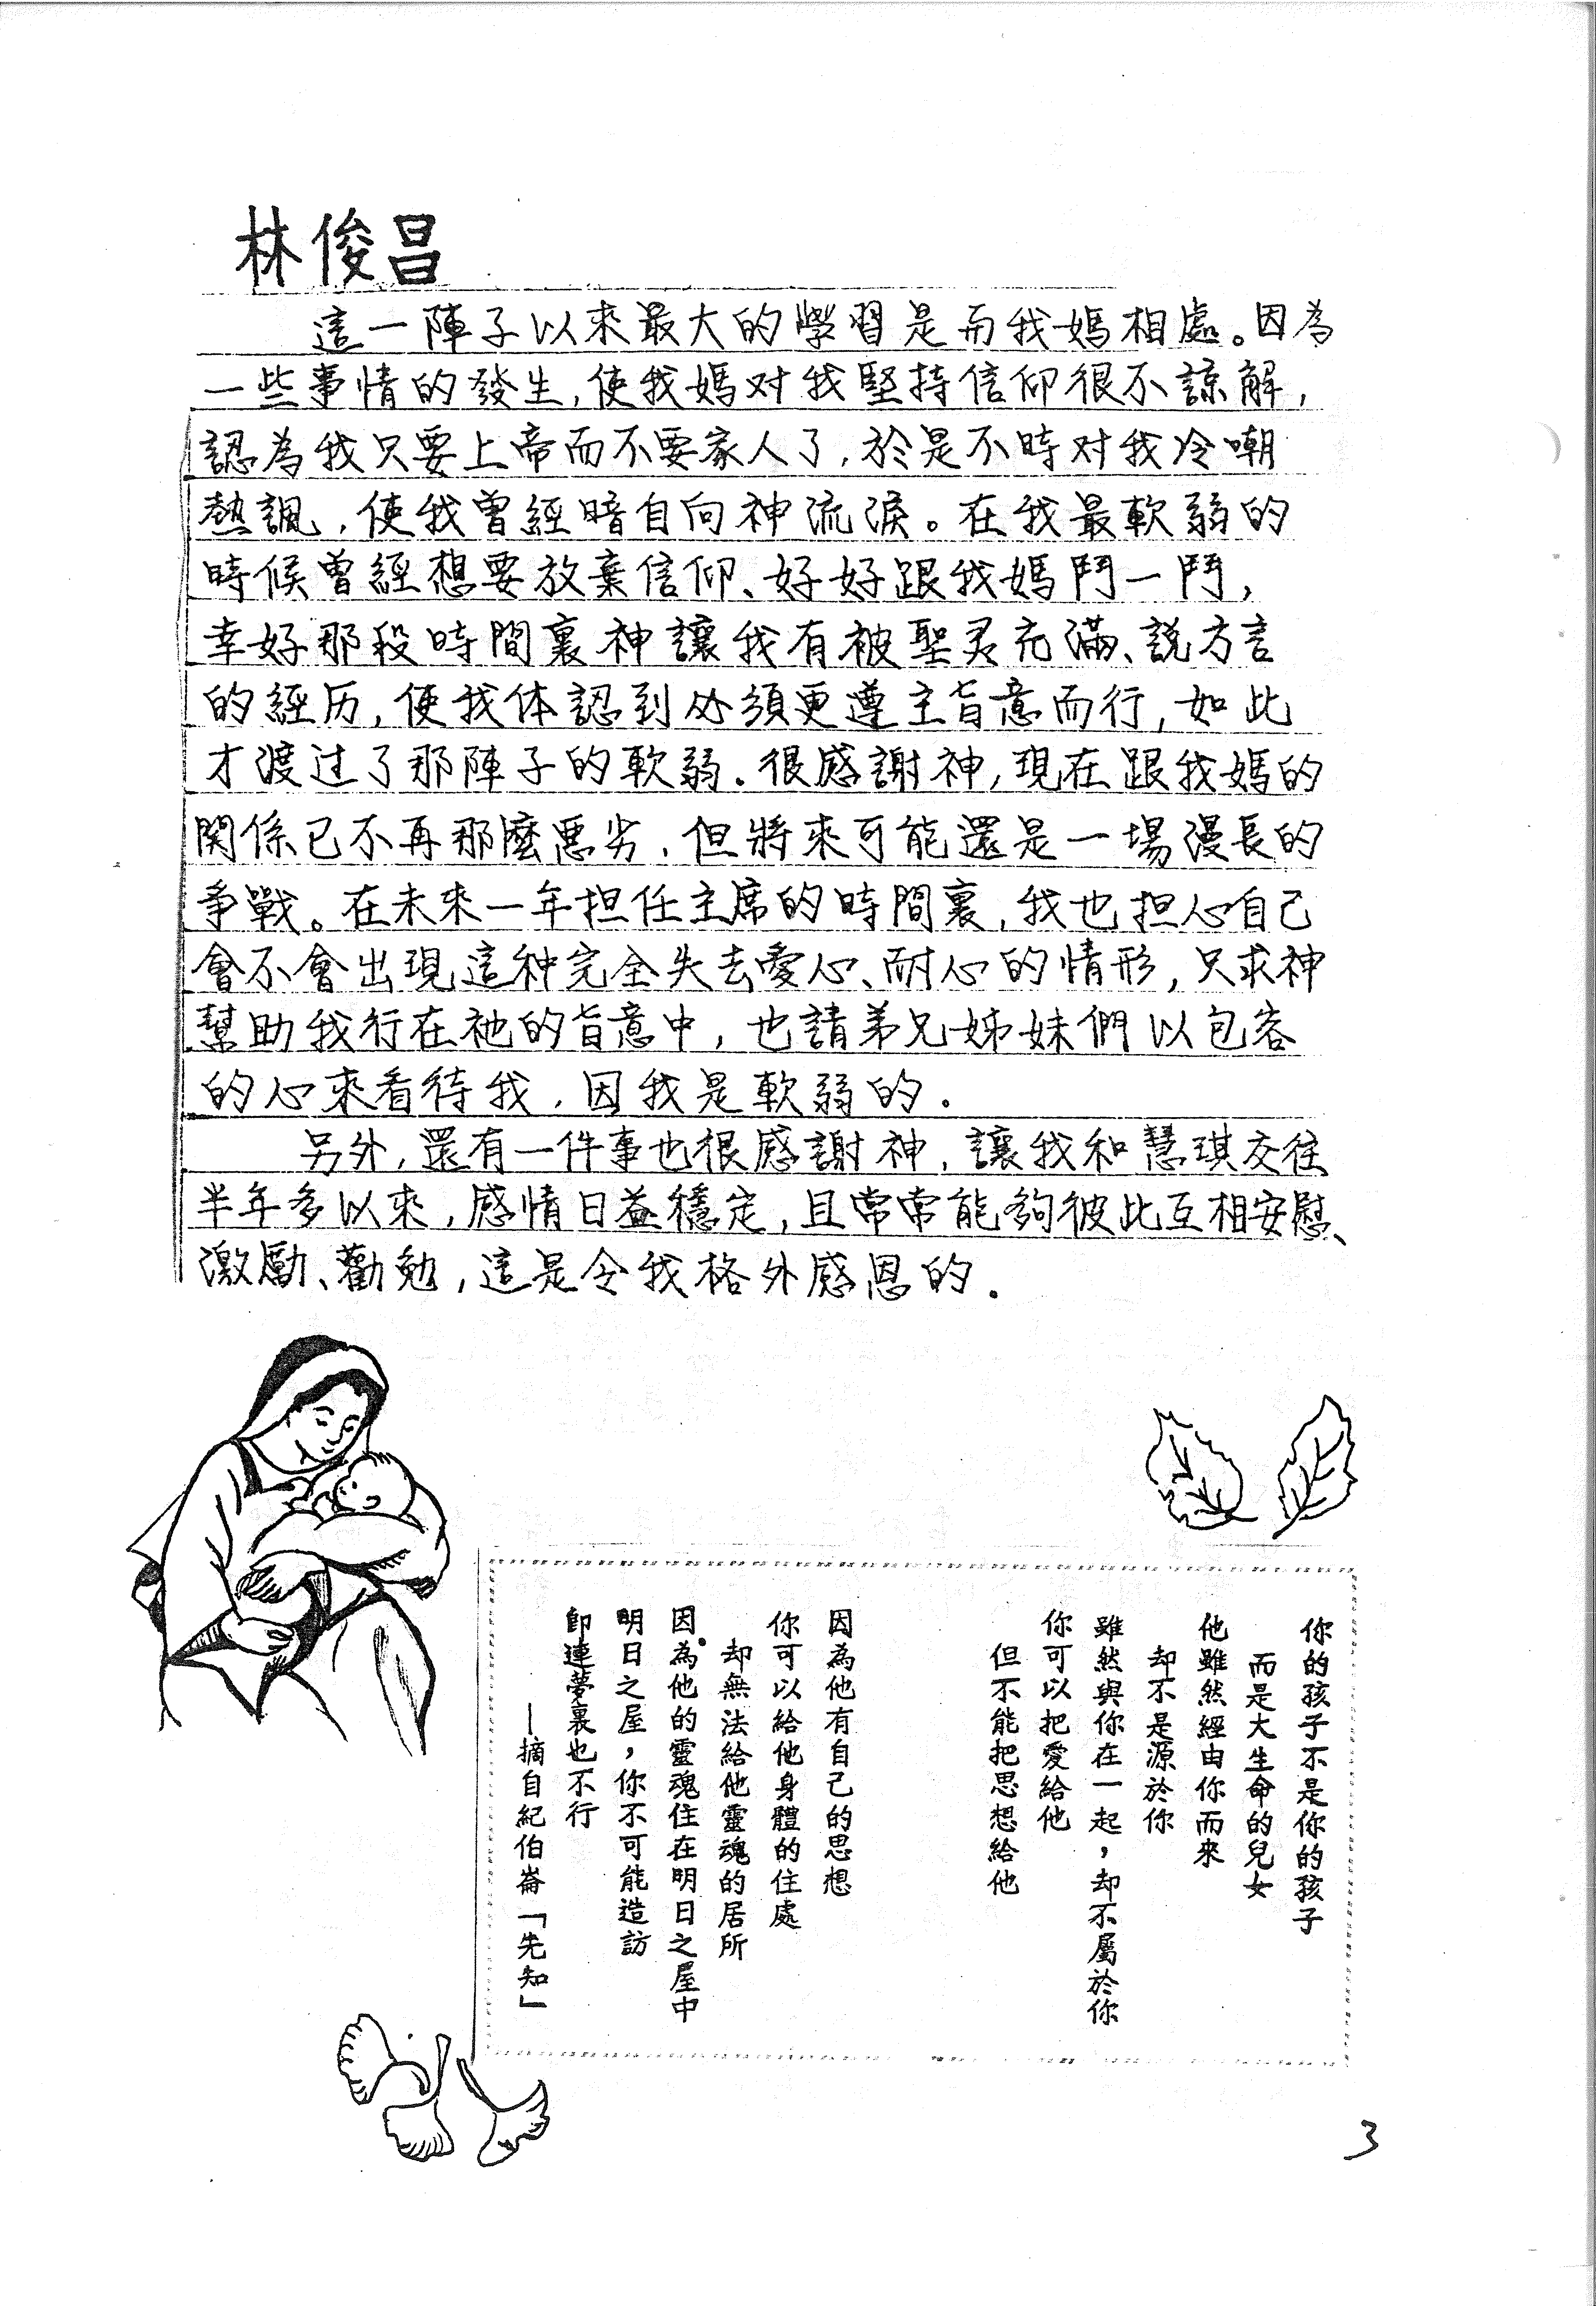 林俊昌
這一陣子以來最大的學習是而我媽相處。因為
一些事情的發生,使我媽对我堅持信仰很不諒解,
認為我只要上帝而不要家人了,於是不時对我冷嘲
熱諷,使我曾經暗自向神流淚。在我最軟弱的
時候曾經想要放棄信仰、好好跟我媽鬥一鬥,
幸好那段時間裏神讓我有被聖灵充滿、說方言
的經历,使我体認到必須更遵主旨意而行,如此
才渡过了那陣子的軟弱.很感謝神,現在跟我媽的
関係已不再那麼惡劣,但將來可能還是一場漫長的
爭戰。在未來一年担任主席的時間裏,我也担心自己
會不會出現這种完全失去愛心、耐心的情形,只求神
幫助我行在祂的旨意中,也請弟兄姊妹們以包容
的心來看待我,因我是軟弱的.
另外,還有一件事也很感謝神,讓我和慧琪交往
半年多以來,感情日益穩定,且常常能夠彼此互相安慰、
激勵、勸勉,這是令我格外感恩的.
你的孩子不是你的孩子
而是大生命的兒女
他雖然經由你而來
却不是源於你
雖然與你在一起,却不屬於你
你可以把愛給他
但不能把思想給他
因為他有自己的思想
你可以給他身體的住處
却無法給他靈魂的居所
因為他的靈魂住在明日之屋中
明日之屋,你不可能造訪
即連夢裏也不行
—摘自紀伯崙「先知」
3